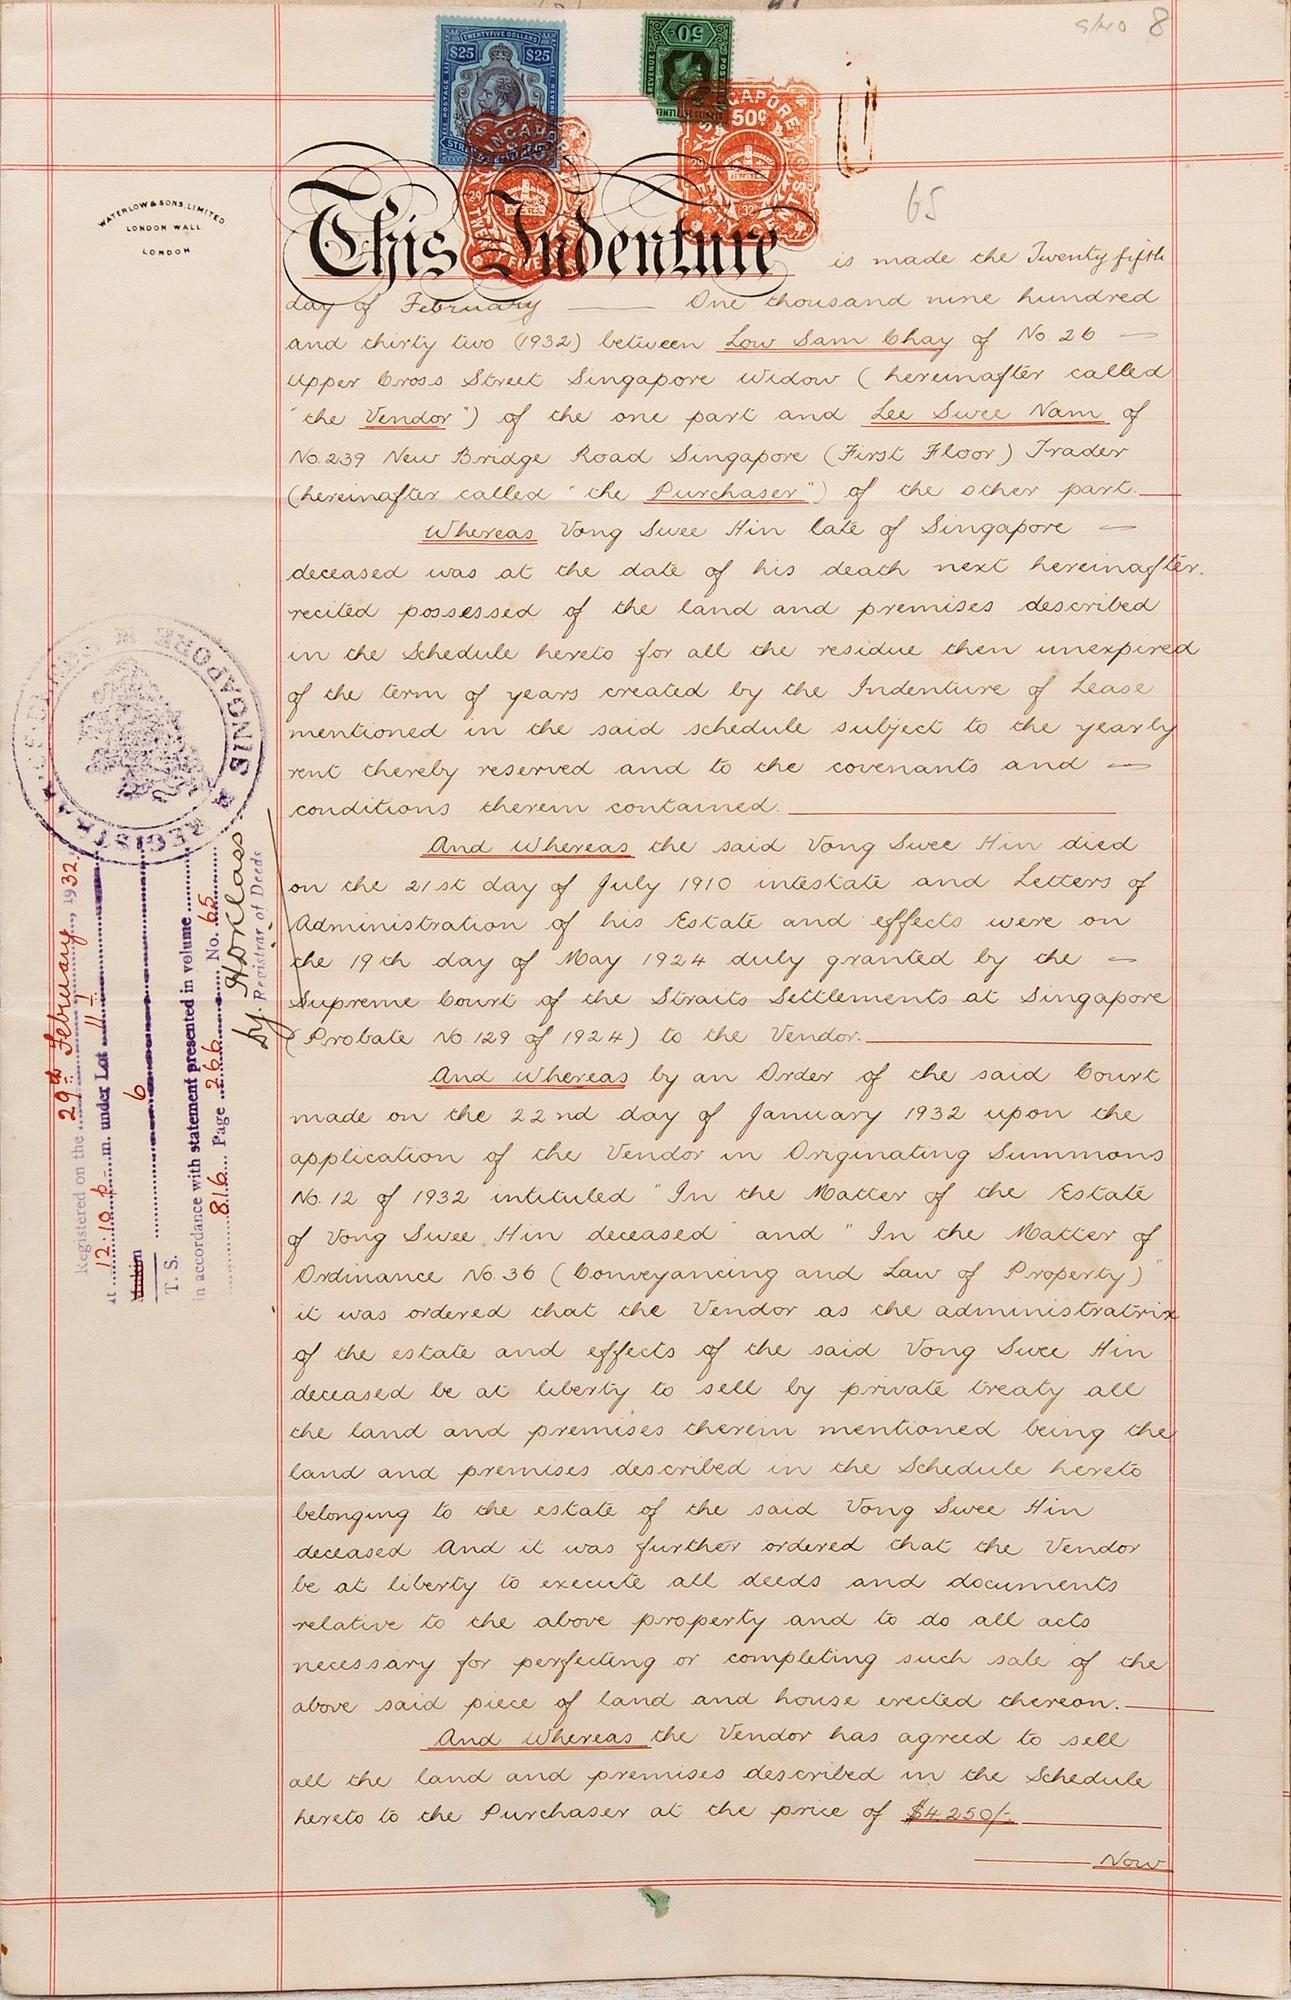 8
TWENTYFIVE DOLLARS
$25 $25
50
REVENUE
SINGAPORE
50c
65
WATERLOW & SONS, LIMITED
LONDON WALL
LONDON
This Indenture is made the Twenty fifth
day of February One thousand nine hundred
and thirty two (1932) between Low Sam Chay of No. 26 —
Upper Cross Street Singapore Widow (hereinafter called
"the Vendor") of the one part and Lee Swee Nam of
No. 239 New Bridge Road Singapore (First Floor) Trader
(hereinafter called "the Purchaser") of the other part.
Whereas Vong Swee Hin late of Singapore —
deceased was at the date of his death next hereinafter
recited possessed of the land and premises described
in the Schedule hereto for all the residue then unexpired
of the term of years created by the Indenture of Lease
mentioned in the said schedule subject to the yearly
rent thereby reserved and to the covenants and —
conditions therein contained.
And Whereas the said Vong Swee Hin died
on the 21st day of July 1910 intestate and Letters of
Administration of his Estate and effects were on
the 19th day of May 1924 duly granted by the —
Supreme Court of the Straits Settlements at Singapore
(Probate No. 129 of 1924) to the Vendor.
And Whereas by an Order of the said Court
made on the 22nd day of January 1932 upon the
application of the Vendor in Originating Summons
No. 12 of 1932 intituled "In the Matter of the Estate
of Vong Swee Hin deceased" and "In the Matter of
Ordinance No. 36 (Conveyancing and Law of Property)"
it was ordered that the Vendor as the administratrix
of the estate and effects of the said Vong Swee Hin
deceased be at liberty to sell by private treaty all
the land and premises therein mentioned being the
land and premises described in the Schedule hereto
belonging to the estate of the said Vong Swee Hin
deceased And it was further ordered that the Vendor
be at liberty to execute all deeds and documents
relative to the above property and to do all acts
necessary for perfecting or completing such sale of the
above said piece of land and house erected thereon.
And Whereas the Vendor has agreed to sell
all the land and premises described in the Schedule
hereto to the Purchaser at the price of $4250/-
Now
SINGAPORE
Registered on the 29th February, 1932.
at 12.10 p.m. under Lot 11-1
Mukim 6
T. S.
in accordance with statement presented in volume
816 Page 266 No. 65
Dy. Registrar of Deeds